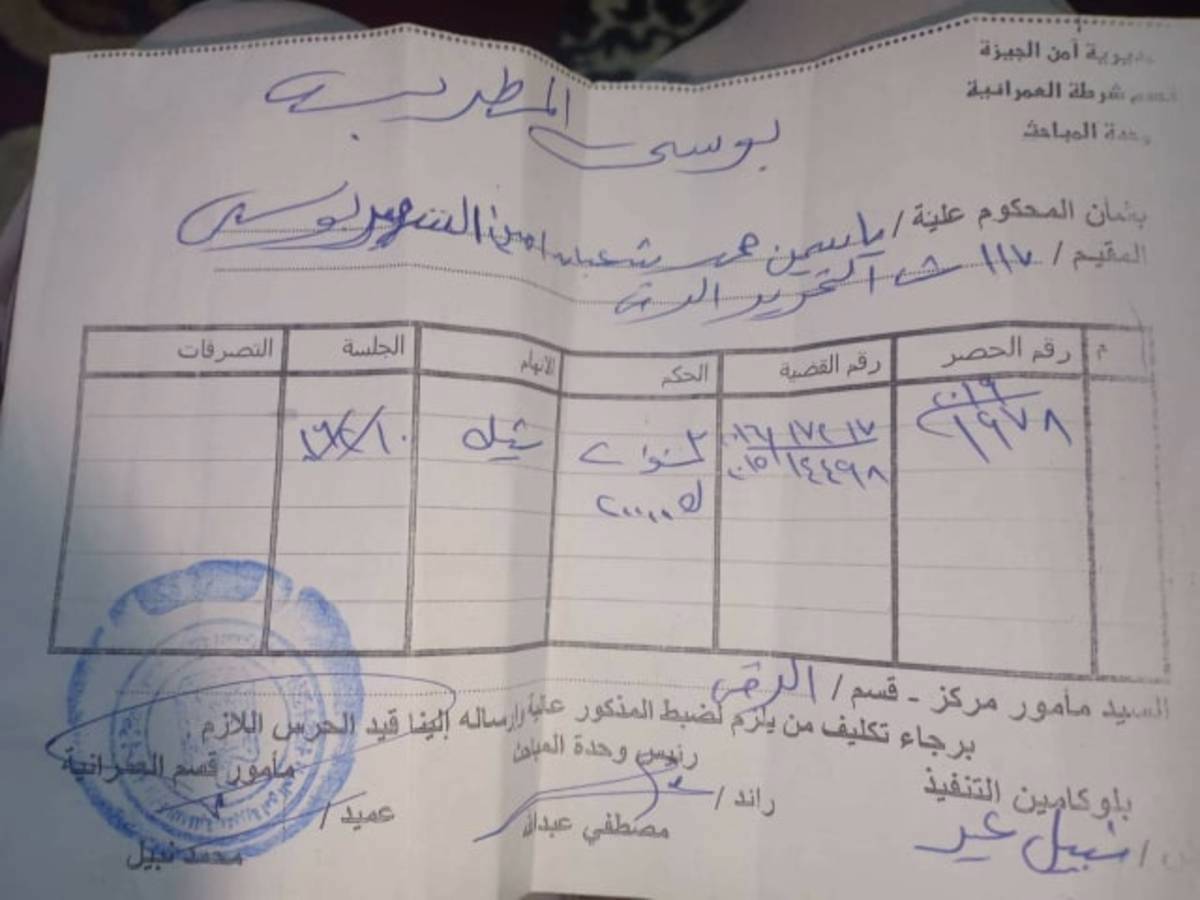 مديرية أمن الجيزة
قسم شرطة العمرانية
وحدة المباحث
بوسى
المطربه
بشأن المحكوم علية / ياسمين محمد شعبان امين الشهير بوسى
المقيم / ١١٧ ش التحرير الدقى
م
رقم الحصر
رقم القضية
الحكم
الاتهام
الجلسة
التصرفات
٢٠١٩
١٩٧٨
١٧٢١٧
٢٠١٥/١٤٤٩٨
٣ سنوات
ك ٢٠٠٠٠
شيك
السيد مأمور مركز - قسم / الدقى
برجاء تكليف من يلزم لضبط المذكور علية وإرساله إلينا قيد الحرس اللازم .
بلوكامين التنفيذ
رئيس وحدة المباحث
مأمور قسم العمرانية
نبيل
رائد /
مصطفي عبدالله
عميد /
محمد نبيل